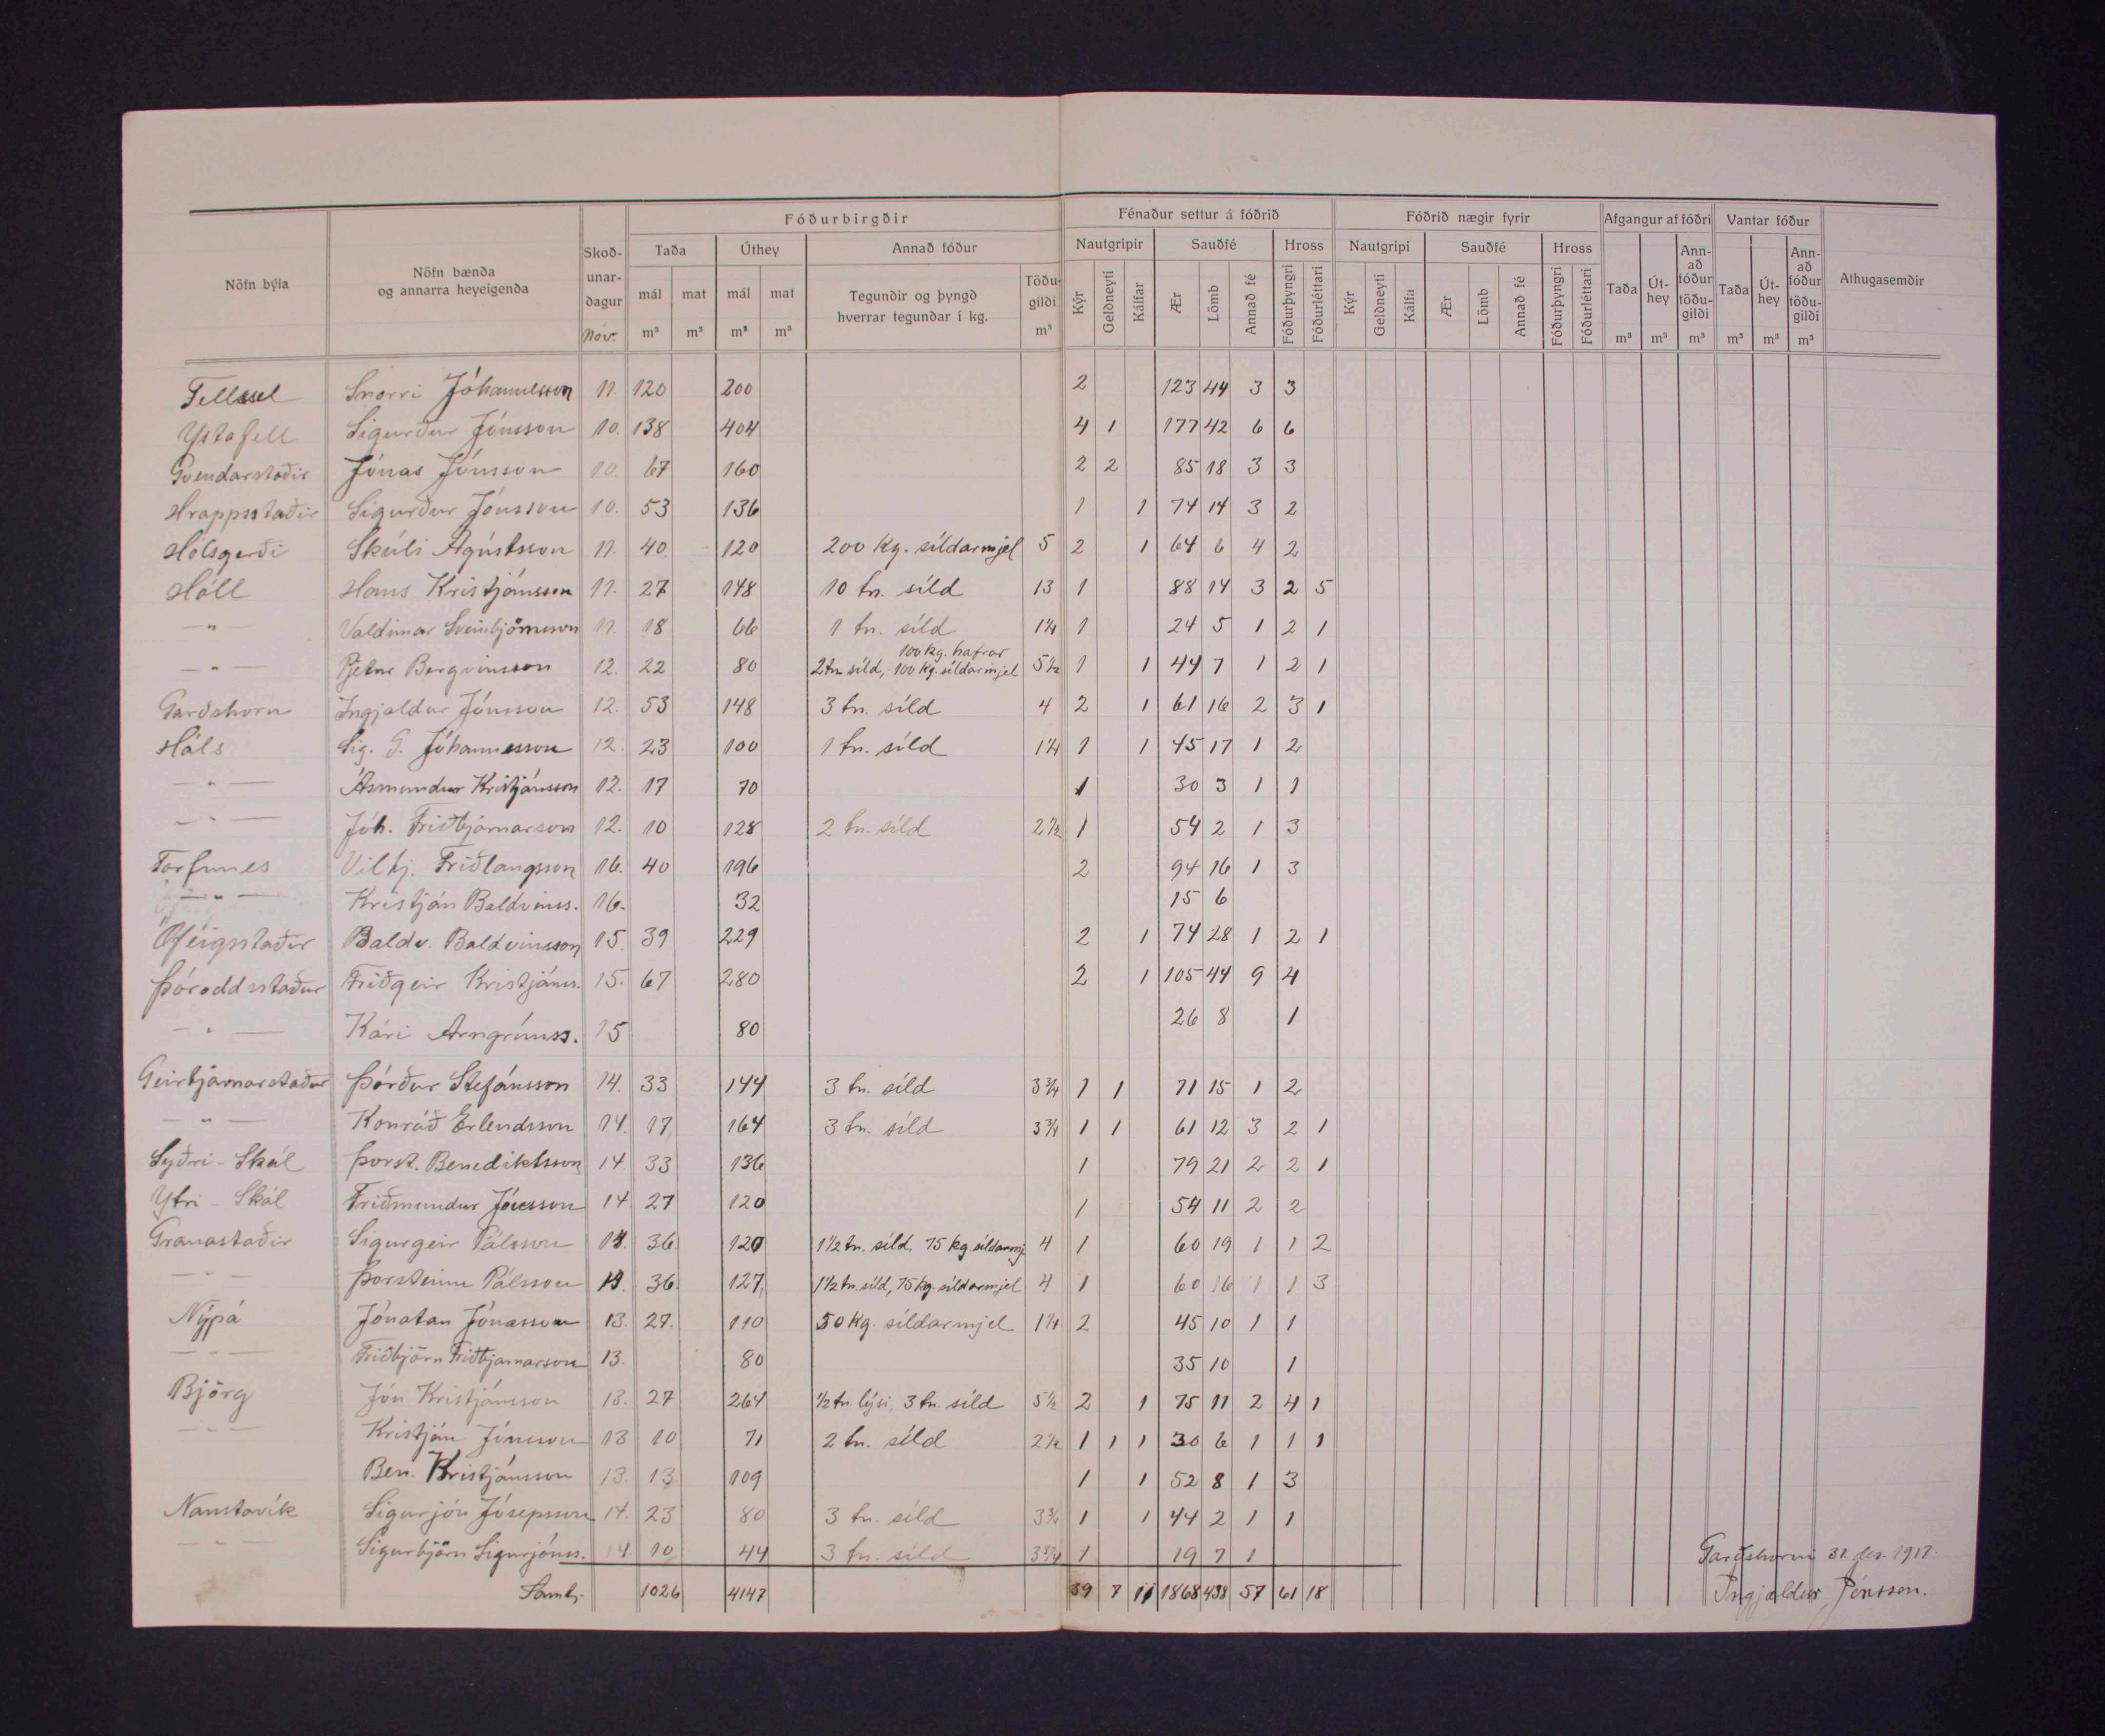 Fóðurbirgðir Fénaður settur á fóðrið Fóðrið nægir fyrir Afgangur af fóðri Vantar fóður
Nöfn býla Nöfn bænda og annarra heyeigenda Skoð-unar-dagur Nóv. Taða Úthey Annað fóður Nautgripir Sauðfé Hross Nautgripi Sauðfé Hross Taða Út-hey Ann-að fóður töðu-gildi Taða Út-hey Ann-að fóður töðu-gildi Athugasemdir
mál mat mál mat Tegundir og þyngd hverrar tegundar í kg. Töðu-gildi Kýr Geldneyti Kálfar Ær Lömb Annað fé Fóðurþyngri Fóðurléttari Kýr Geldneyti Kálfa Ær Lömb Annað fé Fóðurþyngri Fóðurléttari
m³ m³ m³ m³ m³ m³ m³ m³ m³ m³ m³
Fellssel Snorri Jóhannesson 11. 120 200 2 123 44 3 3
Ystafell Sigurður Jónsson 10. 138 404 4 1 177 42 6 6
Gvendarstaðir Jónas Jónsson 10. 67 160 2 2 85 18 3 3
Hrappsstaðir Sigurður Jónsson 10. 53 136 1 1 74 14 3 2
Hólsgerði Skúli Ágústsson 11. 40 120 200 Kg. síldarmjel 5 2 1 64 6 4 2
Hóll Hans Kristjánsson 11. 27 148 10 tn. síld 13 1 88 14 3 2 5
— " — Valdimar Sveinbjörnsson 11. 18 66 1 tn. síld 1¼ 1 24 5 1 2 1
100 kg. hafrar
— " — Pjetur Bergvinsson 12. 22 80 2 tn síld, 100 kg. síldarmjel 5½ 1 1 44 7 1 2 1
Garðshorn Ingjaldur Jónsson 12. 53 148 3 tn. síld 4 2 1 61 16 2 3 1
Háls Sig. G. Jóhannesson 12. 23 100 1 tn. síld 1¼ 1 1 45 17 1 2
— " — Ásmundur Kristjánsson 12. 17 70 1 30 3 1 1
— " — Jóh. Friðbjarnarson 12. 10 128 2 tn. síld 2½ 1 54 2 1 3
Torfunes Vilhj. Friðlaugsson 16. 40 196 2 94 16 1 3
— " — Kristján Baldvinss. 16. 32 15 6
Ófeigsstaðir Baldv. Baldvinsson 15. 39 229 2 1 74 28 1 2 1
Þóroddsstaður Friðgeir Kristjáns. 15. 67 280 2 1 105 44 9 4
— " — Kári Arngrímss. 15 80 26 8 1
Geirbjarnarstaður Þórður Stefánsson 14. 33 144 3 tn. síld 3¾ 1 1 71 15 1 2
— " — Konráð Erlendsson 14. 17 164 3 tn. síld 3¾ 1 1 61 12 3 2 1
Syðri-Skál Þorst. Benediktsson 14. 33 136 1 79 21 2 2 1
Ytri-Skál Friðmundur Jónsson 14 27 120 1 54 11 2 2
Granastaðir Sigurgeir Pálsson 14. 36. 120 1½ tn. síld, 75 kg síldarmj. 4 1 60 19 1 1 2
— " — Þorsteinn Pálsson 14. 36. 127 1½ tn. síld, 75 kg. síldarmjel 4 1 60 16 1 1 3
Nýpá Jónatan Jónasson 13. 27. 110 50 kg. síldarmjel 1¼ 2 45 10 1 1
— " — Friðbjörn Friðbjarnarson 13. 80 35 10 1
Björg Jón Kristjánsson 13. 27 264 ½ tn. lýsi, 3 tn. síld 5½ 2 1 75 11 2 4 1
— " — Kristján Jónsson 13 10 71 2 tn. síld 2½ 1 1 1 30 6 1 1 1
Ben. Kristjánsson 13. 13 109 1 1 52 8 1 3
Naustavík Sigurjón Jósepsson 14. 23 80 3 tn. síld 3¾ 1 1 44 2 1 1
— " — Sigurbjörn Sigurjónss. 14. 10 44 3 tn. síld 3¾ 1 19 7 1
Samtj. 1026 4147 39 7 11 1868 438 57 61 18
Garðshorni 31. des. 1917.
Ingjaldur Jónsson.